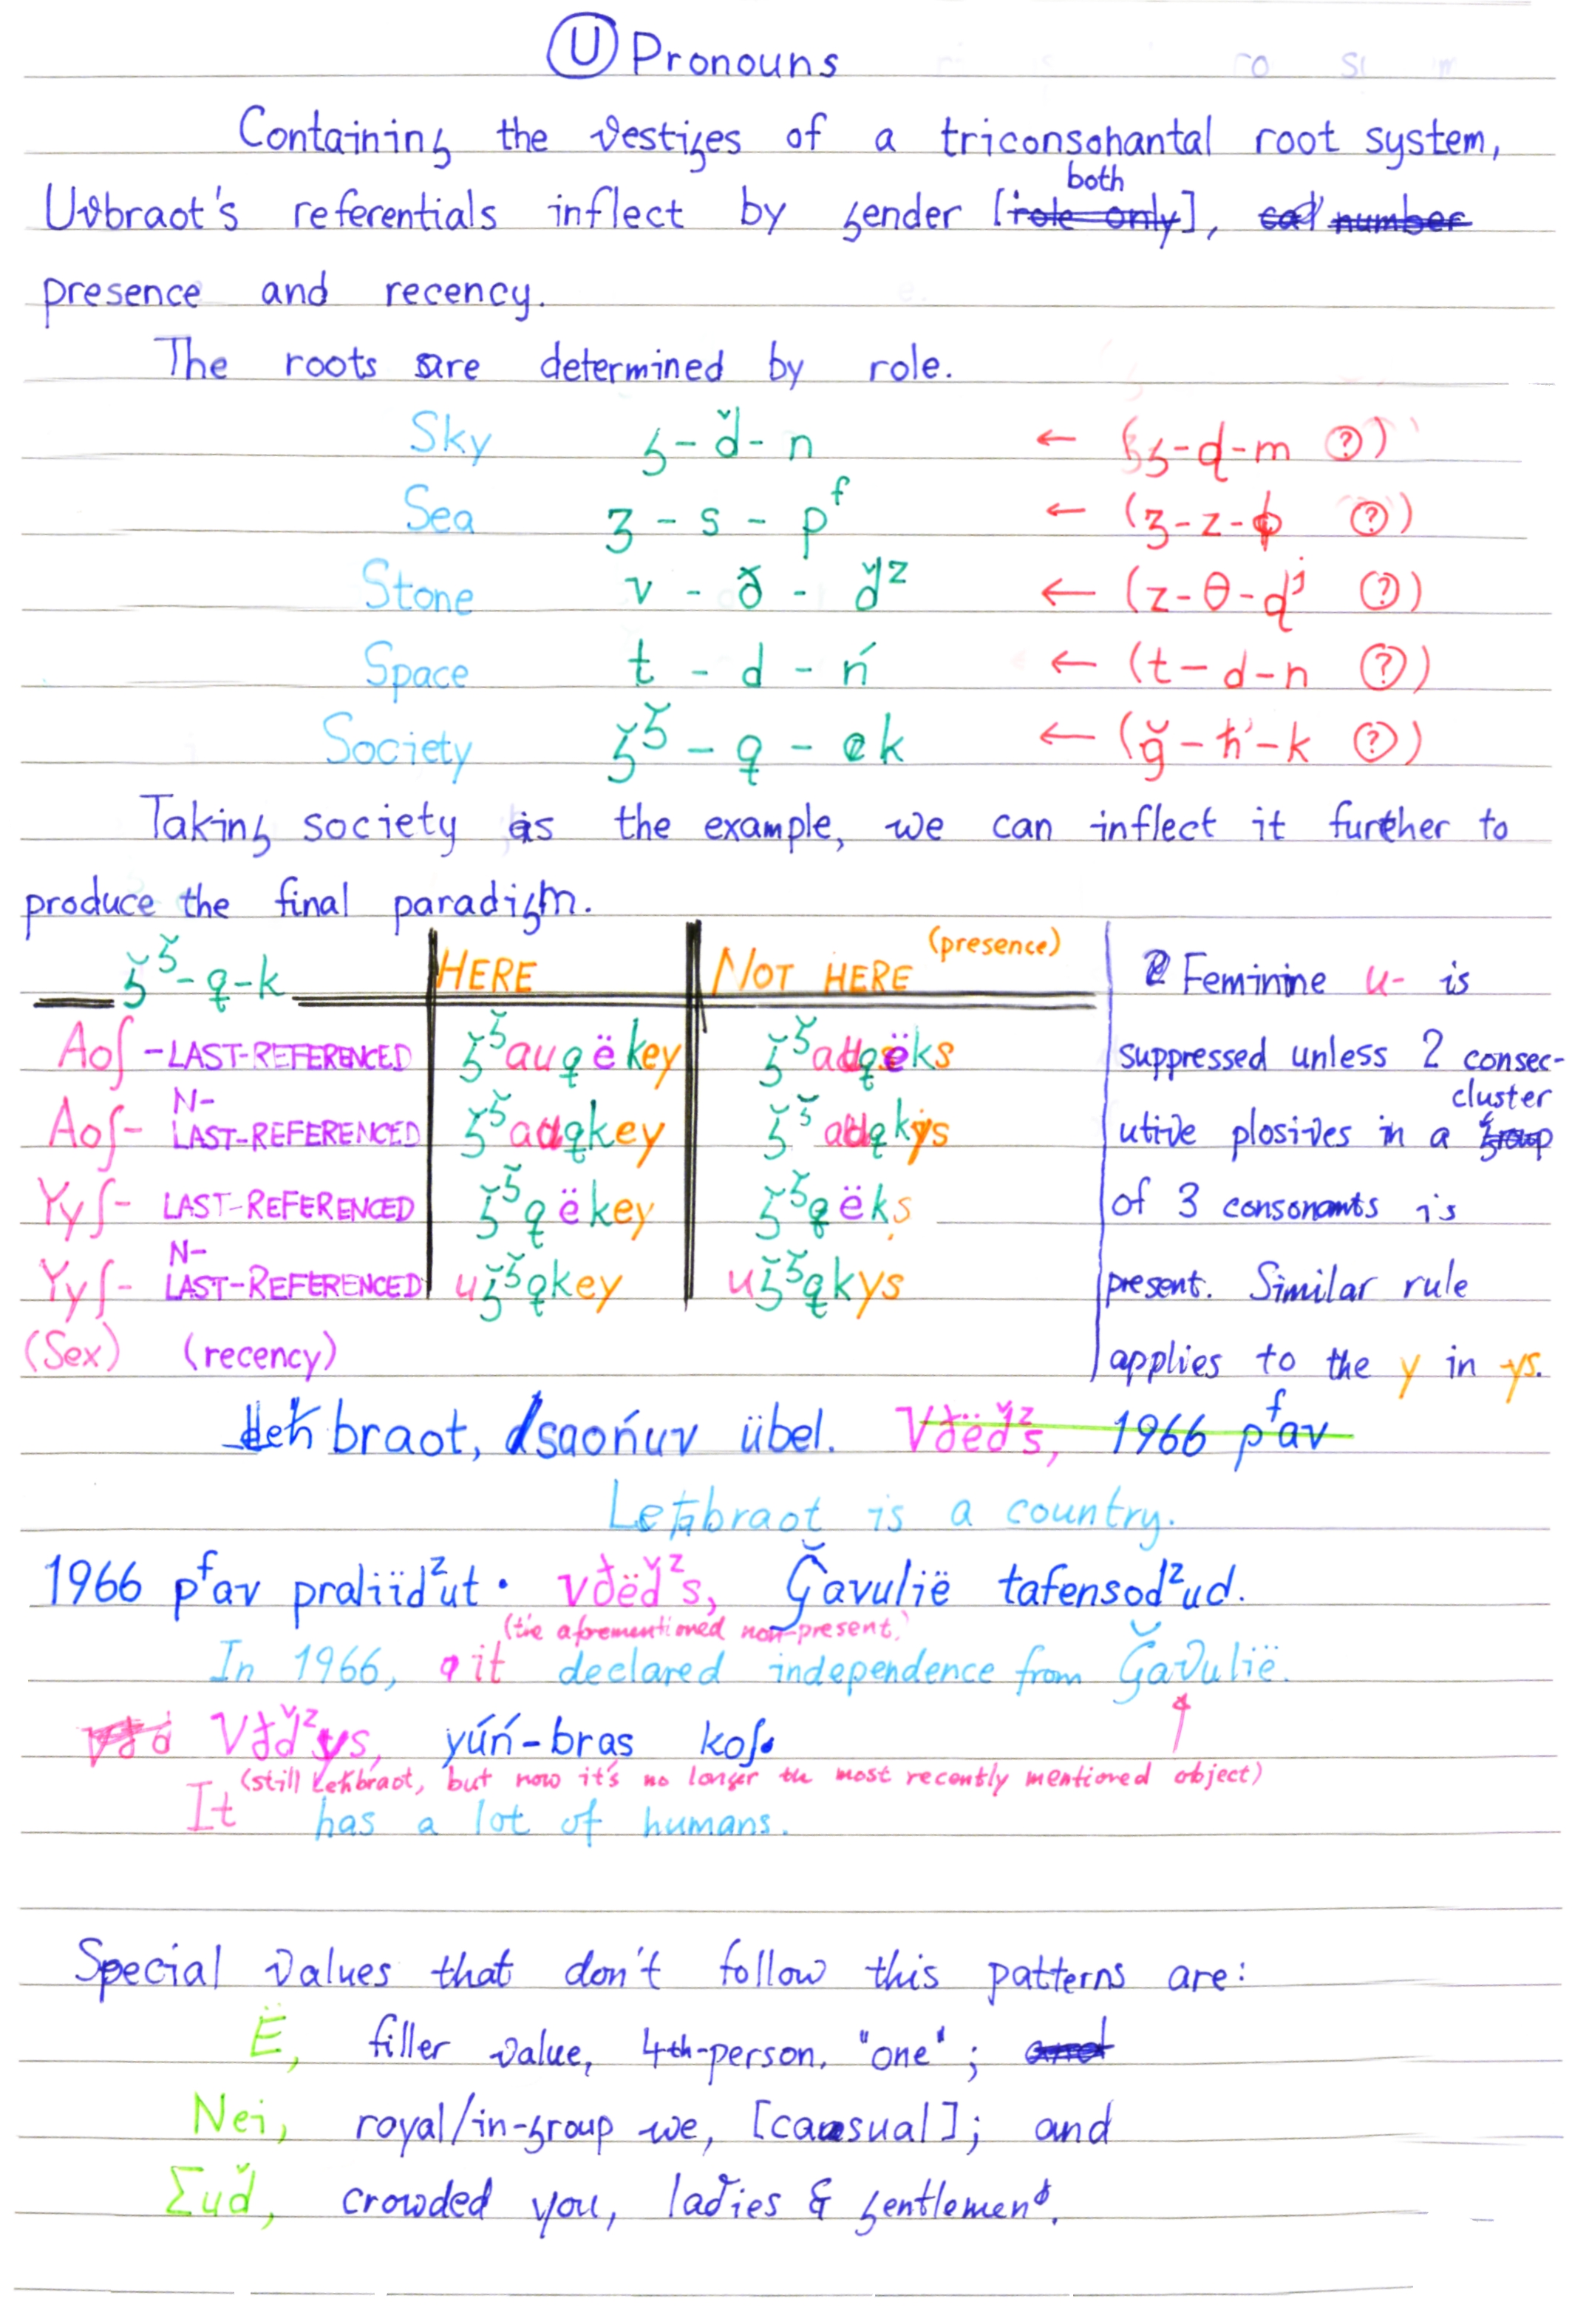 Ⓤ Pronouns
Containing the vestiges of a triconsonantal root system,
both
Uvbraot's referentials inflect by gender [role only], number
presence and recency.
The roots are determined by role.
Sky ʒ - ď - n ← (ʒ-d-m ?)
Sea 3 - s - pᶠ ← (3-z-ɸ ?)
Stone v - ð - d̆ᶻ ← (z-θ-dʲ ?)
Space t - d - ń ← (t-d-n ?)
Society ʒ̆ʒ̆ - q - k ← (ğ-ħ-k ?)
Taking society as the example, we can inflect it further to
produce the final paradigm.
ʒ̆ʒ̆-q-k HERE NOT HERE (presence)
Aoʃ - LAST-REFERENCED ʒ̆ʒ̆auqëkey ʒ̆ʒ̆auqëks
Aoʃ - N-LAST-REFERENCED ʒ̆ʒ̆auqkey ʒ̆ʒ̆auqkys
Yyʃ - LAST-REFERENCED ʒ̆ʒ̆qëkey ʒ̆ʒ̆qëks
Yyʃ - N-LAST-REFERENCED uʒ̆ʒ̆qkey uʒ̆ʒ̆qkys
(Sex) (recency)
Feminine u- is
suppressed unless 2 consec-
cluster
utive plosives in a group
of 3 consonants is
present. Similar rule
applies to the y in ys.
Leħbraot, dsaońuv übel. Vðëd̆ᶻs, 1966 pᶠav
Leħbraot is a country.
1966 pᶠav praliïdᶻut. vðëd̆ᶻs, Ğavulië tafensodᶻud.
(the aforementioned non-present)
In 1966, it declared independence from Ğavulië.
Vðd̆ᶻys, yúń-bras koʃ.
(still Leħbraot, but now it's no longer the most recently mentioned object)
It has a lot of humans.
Special values that don't follow this patterns are:
Ë, filler value, 4th-person, "one"; and
Nei, royal/in-group we, [casual]; and
Σud̆, crowded you, ladies & gentlemen.